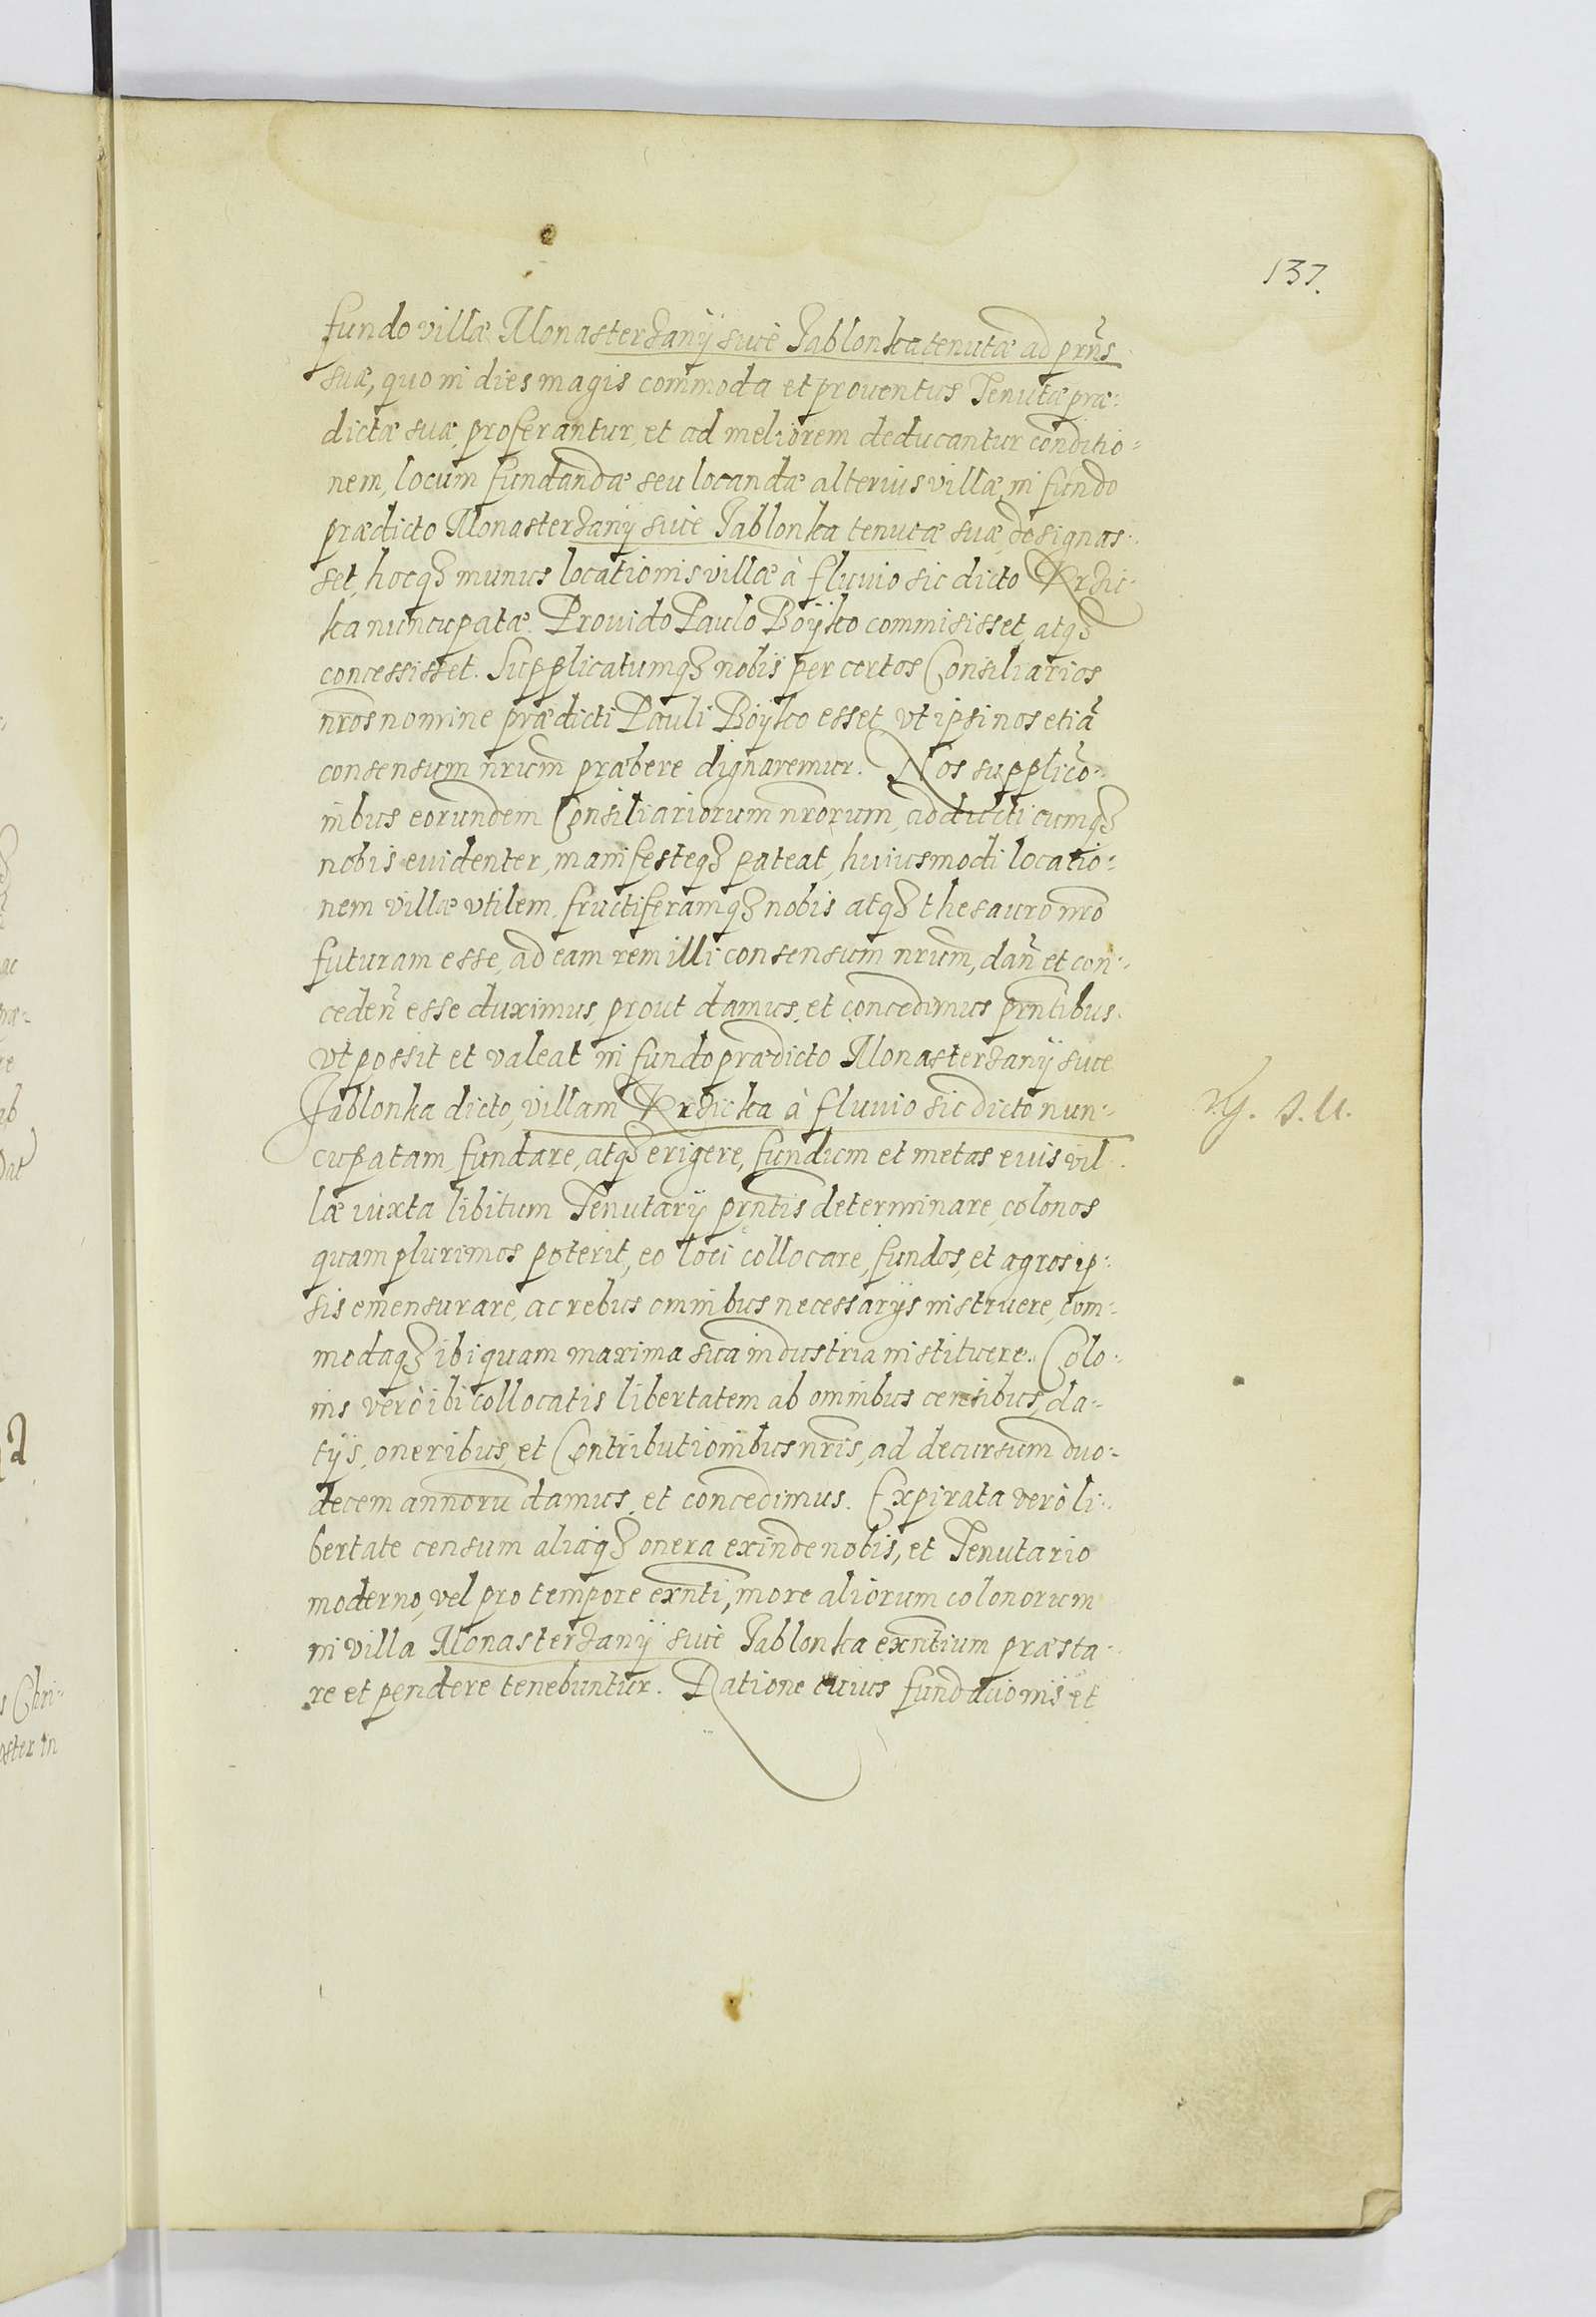 137.
fundo villæ Monasterzanÿ siue Jablonka tenutæ ad prñs
suæ, quo in dies magis commoda et prouentus Tenutæ præ-
dictæ suæ proferantur, et ad meliorem deducantur conditio-
nem, locum fundandæ seu locandæ alterius villæ in fundo
prædicto Monasterzanÿ siue Jablonka tenutæ suæ designas-
set, hocq3 munus locationis villæ à fluuio sic dicto Krzic-
ka nuncupatæ Prouido Paulo Boÿko commisisset, atq3
concessisset. Supplicatumq3 nobis per certos Consiliarios
nros nomine prædicti Pauli Boÿko esset, vt ipsi nos etiã
consensum nrum præbere dignaremur. Nos supplicõ-
nibus eorundem Consiliariorum nrorum, adducti cumq3
nobis euidenter, manifesteq3 pateat, huiusmodi locatio-
nem villæ vtilem, fructiferamq3 nobis atq3 thesauro nro
futuram esse, ad eam rem illi consensum nrum, dañ et con-
cedeñ esse duximus, prout damus, et concedimus prntibus.
vt possit et valeat in fundo prædicto Monasterzanÿ siue
Jablonka dicto, villam Krzicka à fluuio sic dicto nun-
cupatam, fundare, atq3 erigere, fundum et metas euis vil-
læ iuxta libitum Tenutarÿ prntis determinare, colonos
quam plurimos poterit, eo loci collocare, fundos, et agros ip-
sis emensurare, ac rebus omnibus necessarÿs instruere, com-
modaq3 ibi quam maxima sua industria instituere. Colo-
nis verò ibi collocatis libertatem ab omnibus censibus, da-
tÿs, oneribus, et Contributionibus nris, ad decursum duo-
decem annoru damus, et concedimus. Expirata verò li-
bertate censum aliaq3 onera exinde nobis, et Tenutario
moderno, vel pro tempore exnti, more aliorum colonorum
in villa Monasterzanÿ siue Jablonka exntium præsta-
re et pendere tenebuntur. Ratione cuius fundacionis et